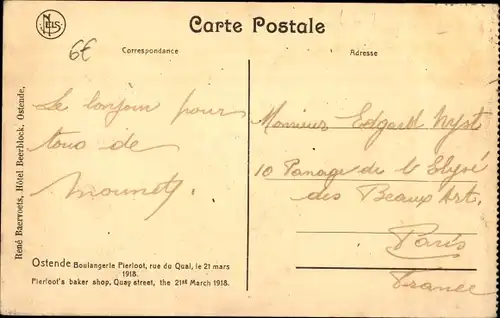 NELS
Carte Postale
6€
Correspondance
Adresse
Le bonjour pour
tous de
Monsieur Edgard Nyst
10 Passage de l'Elysé
des Beaux Art.
Paris
France
René Baervoets, Hôtel Beerblock, Ostende.
Ostende Boulangerie Pierloot, rue du Quai, le 21 mars
1918.
Pierloot's baker shop, Quay street, the 21st March 1918.